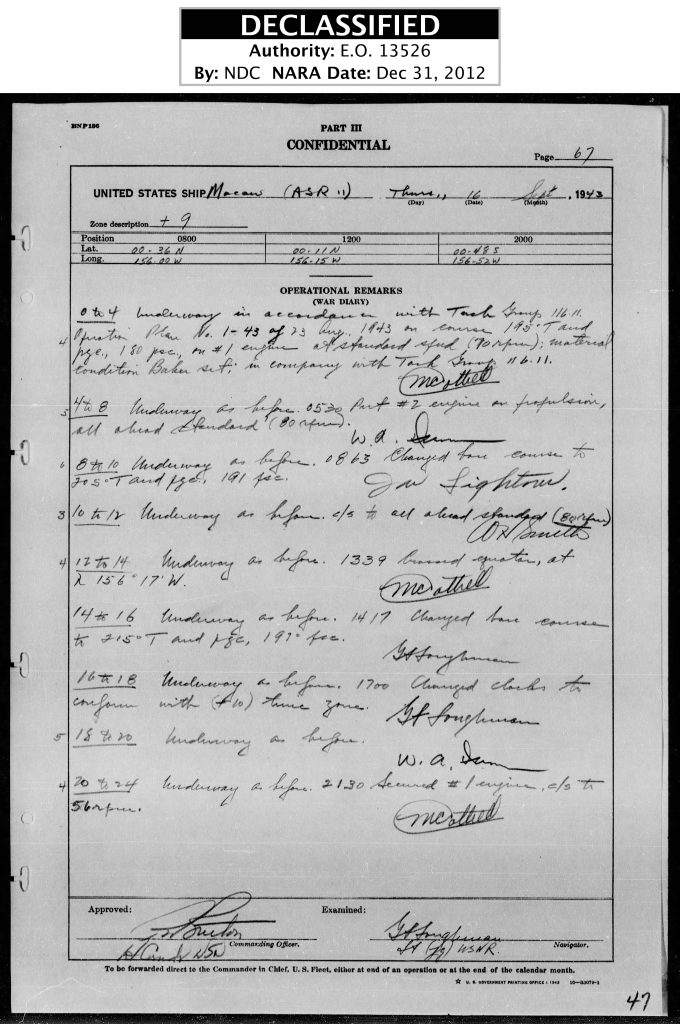 DECLASSIFIED
Authority: E.O. 13526
By: NDC NARA Date: Dec 31, 2012
BNP186
PART III
CONFIDENTIAL
Page 67
UNITED STATES SHIP Macaw (ASR 11) Thurs., 16 Sept, 1943
(Day) (Date) (Month)
Zone description + 9
Position 0800 1200 2000
Lat. 00-36 N 00-11 N 00-48 S
Long. 156-00 W 156-15 W 156-52 W
OPERATIONAL REMARKS
(WAR DIARY)
0 to 4 Underway in accordance with Task Group 116.11.
4 Operation Plan No. 1-43 of 23 Aug., 1943 on course 195°T and
pgc., 180 psc., on #1 engine at standard speed (70 rpm); material
condition Baker set; in company with Task Group 116.11.
5 4 to 8 Underway as before. 0530 Put #2 engine on propulsion,
all ahead standard (80 rpm).
W. A. Dunn
6 8 to 10 Underway as before. 0863 Changed base course to
205°T and pgc., 191 psc.
3 10 to 12 Underway as before. c/s to all ahead standard (80 rpm)
Smith
4 12 to 14 Underway as before. 1339 crossed equator, at
λ 156° 17' W.
14 to 16 Underway as before. 1417 Changed base course
to 215°T and pgc, 197° psc.
G F Loughman
16 to 18 Underway as before. 1700 Changed clocks to
conform with (+10) time zone. G F Loughman
5 18 to 20 Underway as before.
W. A. Dunn
4 20 to 24 Underway as before. 2130 Secured #1 engine, c/s to
56 rpm.
Approved: Examined:
G F Loughman
Commanding Officer. Navigator.
USN Lt (jg) USNR.
To be forwarded direct to the Commander in Chief, U.S. Fleet, either at end of an operation or at the end of the calendar month.
☆ U. S. GOVERNMENT PRINTING OFFICE : 1943 16-33079-1
47